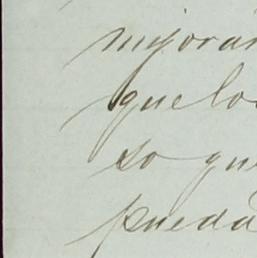 mejoran
que los
so que
pueda